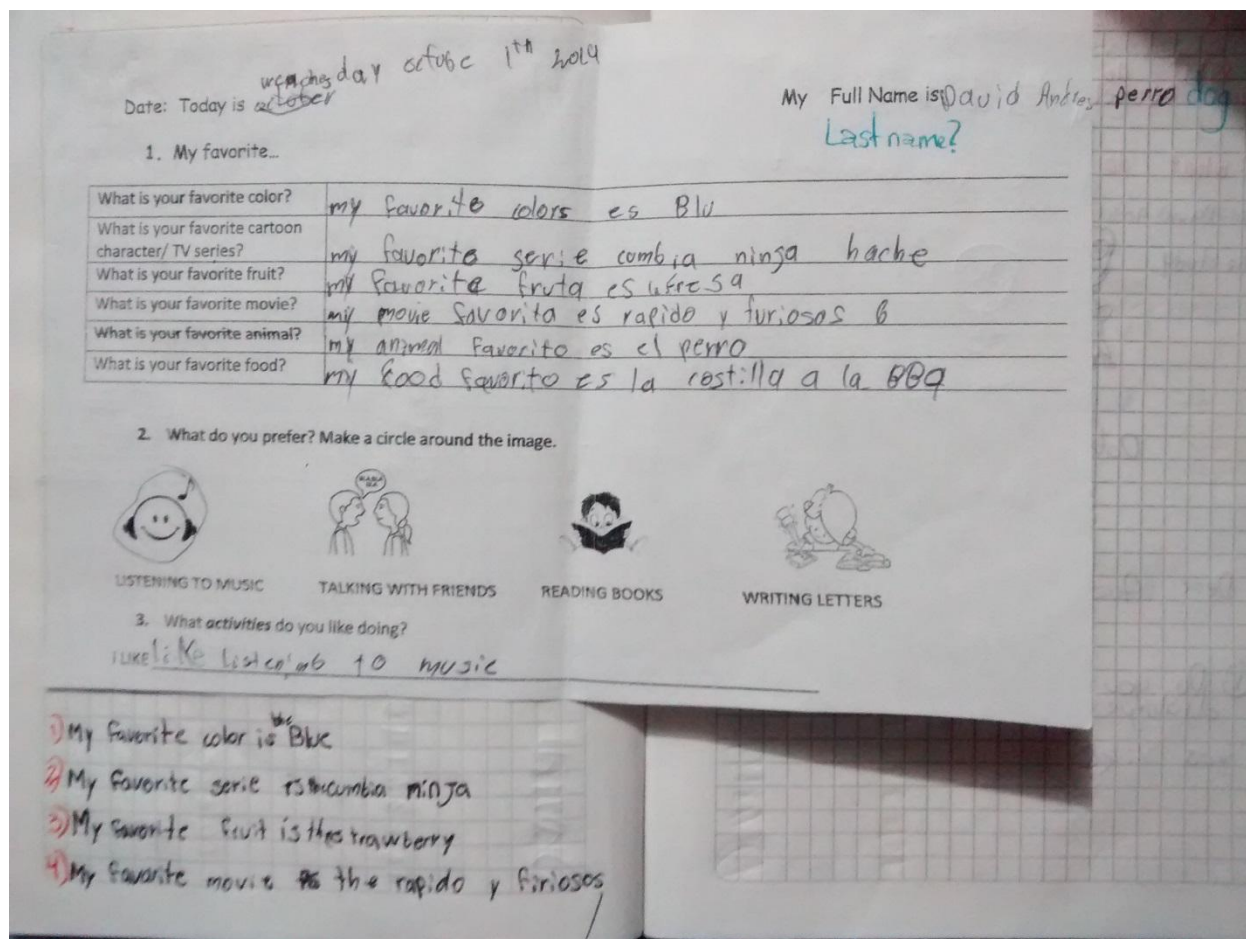 day octubc 1th 2014
Date: Today is october
My Full Name is: David Andres perro dog
Last name?
1. My favorite...
What is your favorite color? my favorite colors es Blu
What is your favorite cartoon
character/ TV series? my favorite serie cumbia ninja hache
What is your favorite fruit? my favorite fruta es
What is your favorite movie? my movie favorita es rapido y furiosos 6
What is your favorite animal? my animal favorito es el perro
What is your favorite food? my food favorito es la costilla a la BBQ
2. What do you prefer? Make a circle around the image.
LISTENING TO MUSIC TALKING WITH FRIENDS READING BOOKS WRITING LETTERS
3. What activities do you like doing?
I LIKE like to music
1) My favorite color is Blue
2) My favorite serie cumbia ninja
3) My favorite fruit is the strawberry
4) My favorite movie the rapido y firiosos